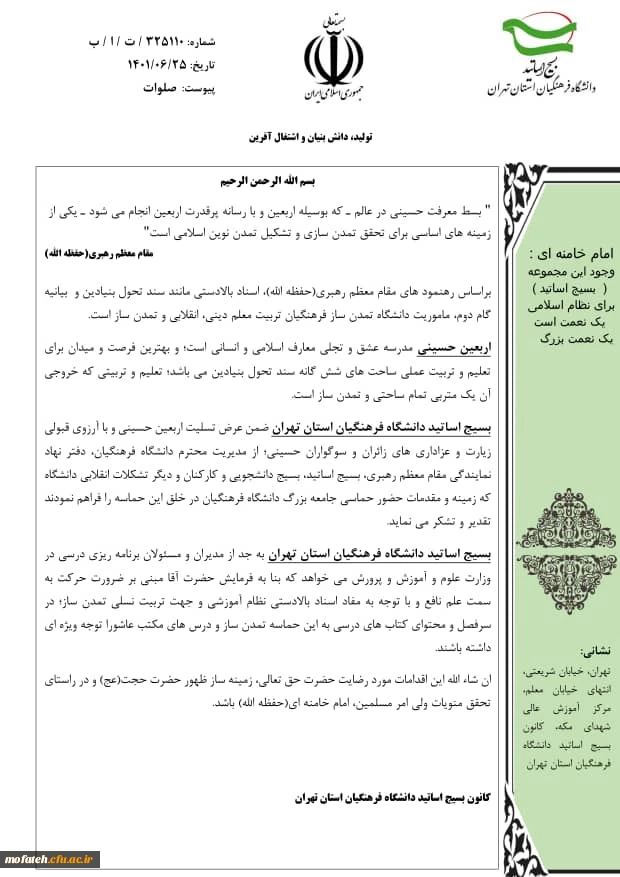 بسمه‌تعالی
جمهوری اسلامی ایران
بسیج اساتید
دانشگاه فرهنگیان استان تهران
شماره: ۳۲۵۱۱۰ / ت / ا / ب
تاریخ: ۱۴۰۱/۰۶/۲۵
پیوست: صلوات
تولید، دانش بنیان و اشتغال آفرین
بسم الله الرحمن الرحیم
" بسط معرفت حسینی در عالم ـ که بوسیله اربعین و با رسانه پرقدرت اربعین انجام می شود ـ یکی از
زمینه های اساسی برای تحقق تمدن سازی و تشکیل تمدن نوین اسلامی است"
مقام معظم رهبری(حفظه الله)
براساس رهنمود های مقام معظم رهبری(حفظه الله)، اسناد بالادستی مانند سند تحول بنیادین و بیانیه
گام دوم، ماموریت دانشگاه تمدن ساز فرهنگیان تربیت معلم دینی، انقلابی و تمدن ساز است.
اربعین حسینی مدرسه عشق و تجلی معارف اسلامی و انسانی است؛ و بهترین فرصت و میدان برای
تعلیم و تربیت عملی ساحت های شش گانه سند تحول بنیادین می باشد؛ تعلیم و تربیتی که خروجی
آن یک متربی تمام ساحتی و تمدن ساز است.
بسیج اساتید دانشگاه فرهنگیان استان تهران ضمن عرض تسلیت اربعین حسینی و با آرزوی قبولی
زیارت و عزاداری های زائران و سوگواران حسینی؛ از مدیریت محترم دانشگاه فرهنگیان، دفتر نهاد
نمایندگی مقام معظم رهبری، بسیج اساتید، بسیج دانشجویی و کارکنان و دیگر تشکلات انقلابی دانشگاه
که زمینه و مقدمات حضور حماسی جامعه بزرگ دانشگاه فرهنگیان در خلق این حماسه را فراهم نمودند
تقدیر و تشکر می نماید.
بسیج اساتید دانشگاه فرهنگیان استان تهران به جد از مدیران و مسئولان برنامه ریزی درسی در
وزارت علوم و آموزش و پرورش می خواهد که بنا به فرمایش حضرت آقا مبنی بر ضرورت حرکت به
سمت علم نافع و با توجه به مفاد اسناد بالادستی نظام آموزشی و جهت تربیت نسلی تمدن ساز؛ در
سرفصل و محتوای کتاب های درسی به این حماسه تمدن ساز و درس های مکتب عاشورا توجه ویژه ای
داشته باشند.
ان شاء الله این اقدامات مورد رضایت حضرت حق تعالی، زمینه ساز ظهور حضرت حجت(عج) و در راستای
تحقق منویات ولی امر مسلمین، امام خامنه ای(حفظه الله) باشد.
کانون بسیج اساتید دانشگاه فرهنگیان استان تهران
امام خامنه ای :
وجود این مجموعه
( بسیج اساتید )
برای نظام اسلامی
یک نعمت است
یک نعمت بزرگ
نشانی:
تهران، خیابان شریعتی،
انتهای خیابان معلم،
مرکز آموزش عالی
شهدای مکه، کانون
بسیج اساتید دانشگاه
فرهنگیان استان تهران
mofateh.cfu.ac.ir